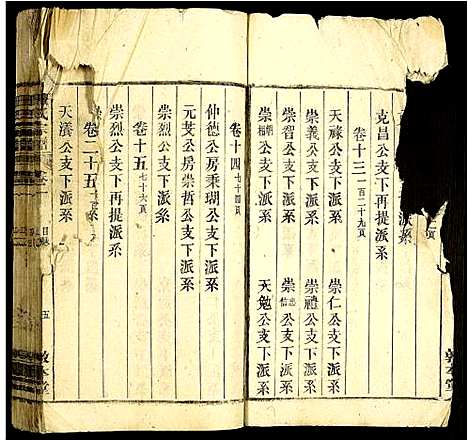 克昌公支下再提派系
卷十三 一百二十九頁
天祿公支下派系 崇仁公支下派系
崇義公支下派系 崇禮公支下派系
崇智公支下派系 崇信公支下派系
崇公支下派系 天勉公支下派系
卷十四 七十四頁
仲德公房秉瑚公支下派系
元芝公房崇哲公支下派系
崇烈公支下派系
卷十五 七十六頁
崇烈公支下再提派系
卷二十五
天瀁公支下派系
目錄
五
敦本堂
敦本堂